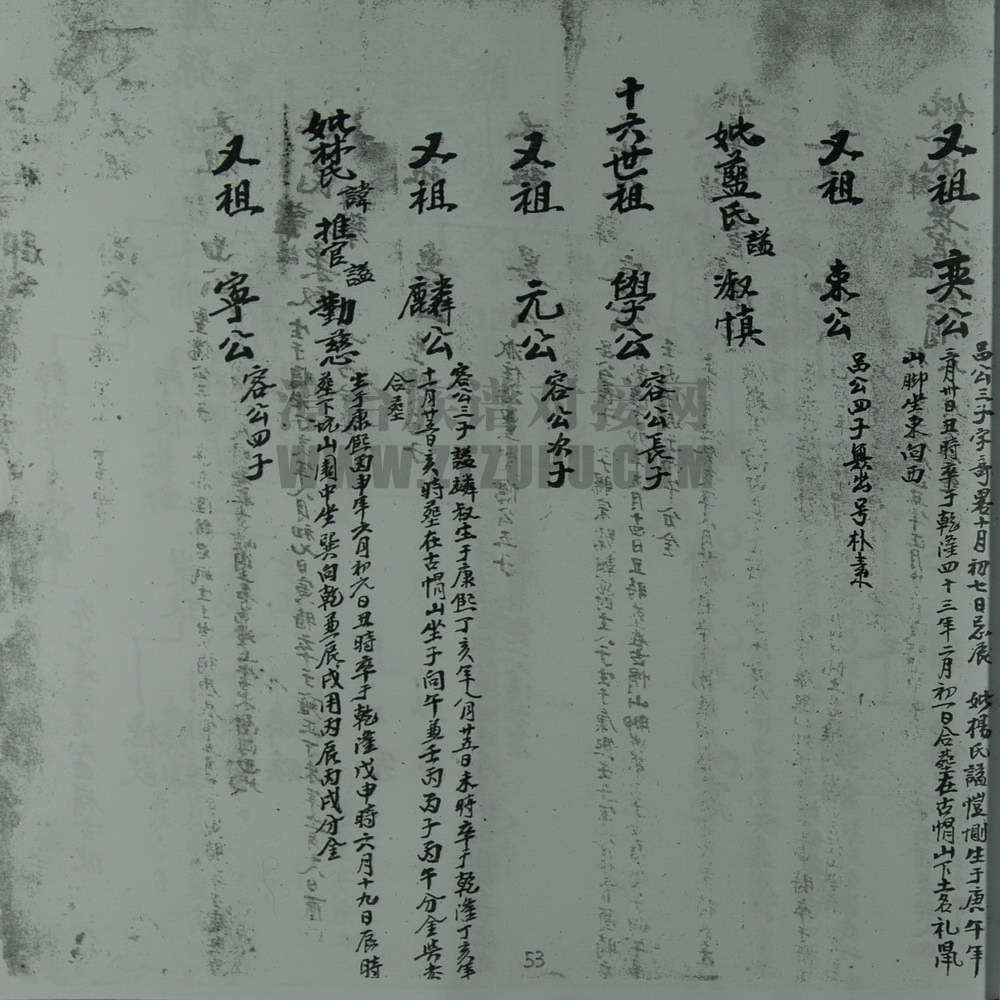 又祖 奕公
吕公三子字奇畧十月初七日忌辰 妣楊氏謚愷惻生于庚午年
二月卅日丑時卒于乾隆四十三年二月初一日合葬在古帽山下土名礼
山脚坐東向西
又祖 束公
吕公四子興出号朴素
妣藍氏謚淑慎
十六世祖 學公
容公長子
又祖 元公
容公次子
又祖 麟公
容公三子謚麟叔生于康熙丁亥年八月廿五日未時卒于乾隆丁亥年
十一月廿五日亥時葬在古帽山坐子向午兼壬丙丙子丙午分金
合葬
妣林氏諱推官謚勤慈
生于康熙丙申年六月初六日丑時卒于乾隆戊申時六月十九日辰時
葬下坑山園中坐巽向乾兼辰戌用丙辰丙戌分金
又祖 寧公
容公四子
53
WWW.ZJZUPU.COM